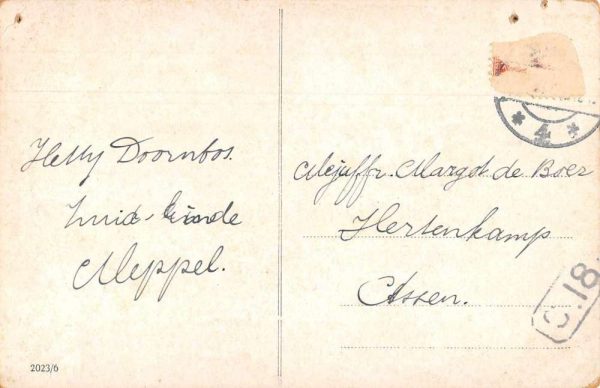 Hetty Doornbos.
Zuid-Einde
Meppel.
2023/6
Mejuffr. Margot de Boer
Hertenkamp
Assen.
* 4 *
S.18